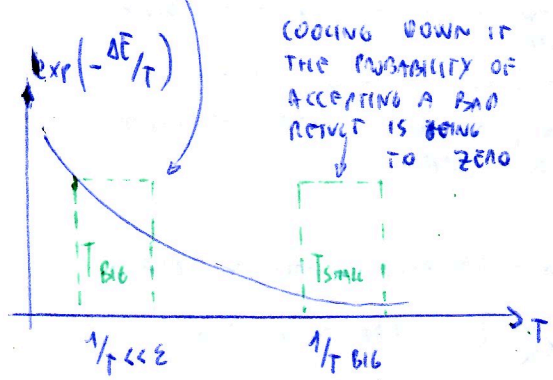 exp(-ΔE/T)
COOLING DOWN IT
THE PROBABILITY OF
ACCEPTING A BAD
RESULT IS GOING
TO ZERO
T BIG
T SMALL
T
1/T << ε
1/T BIG